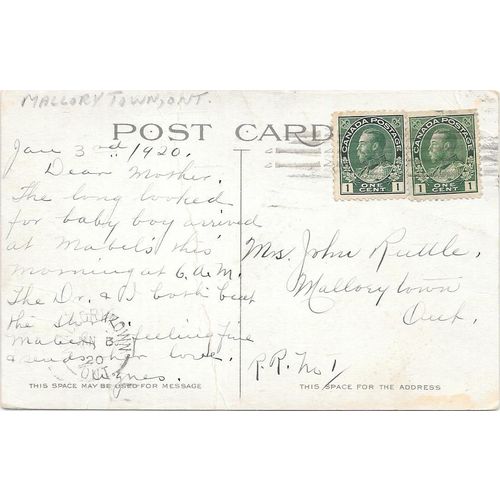 MALLORYTOWN, ONT.
POST CARD
CANADA POSTAGE
1 ONE CENT 1
CANADA POSTAGE
1 ONE CENT 1
Jan 3rd 1920.
Dear Mother.
The long looked
for baby boy arrived
at Mabel's this
morning at 6 a.m.
The Dr. & I both beat
the
Mabel feeling fine
& sends her love.
Agnes.
Mrs. John Ruttle,
Mallorytown
Ont.
R.R. No 1
TOWN
20
ONT
THIS SPACE MAY BE USED FOR MESSAGE
THIS SPACE FOR THE ADDRESS